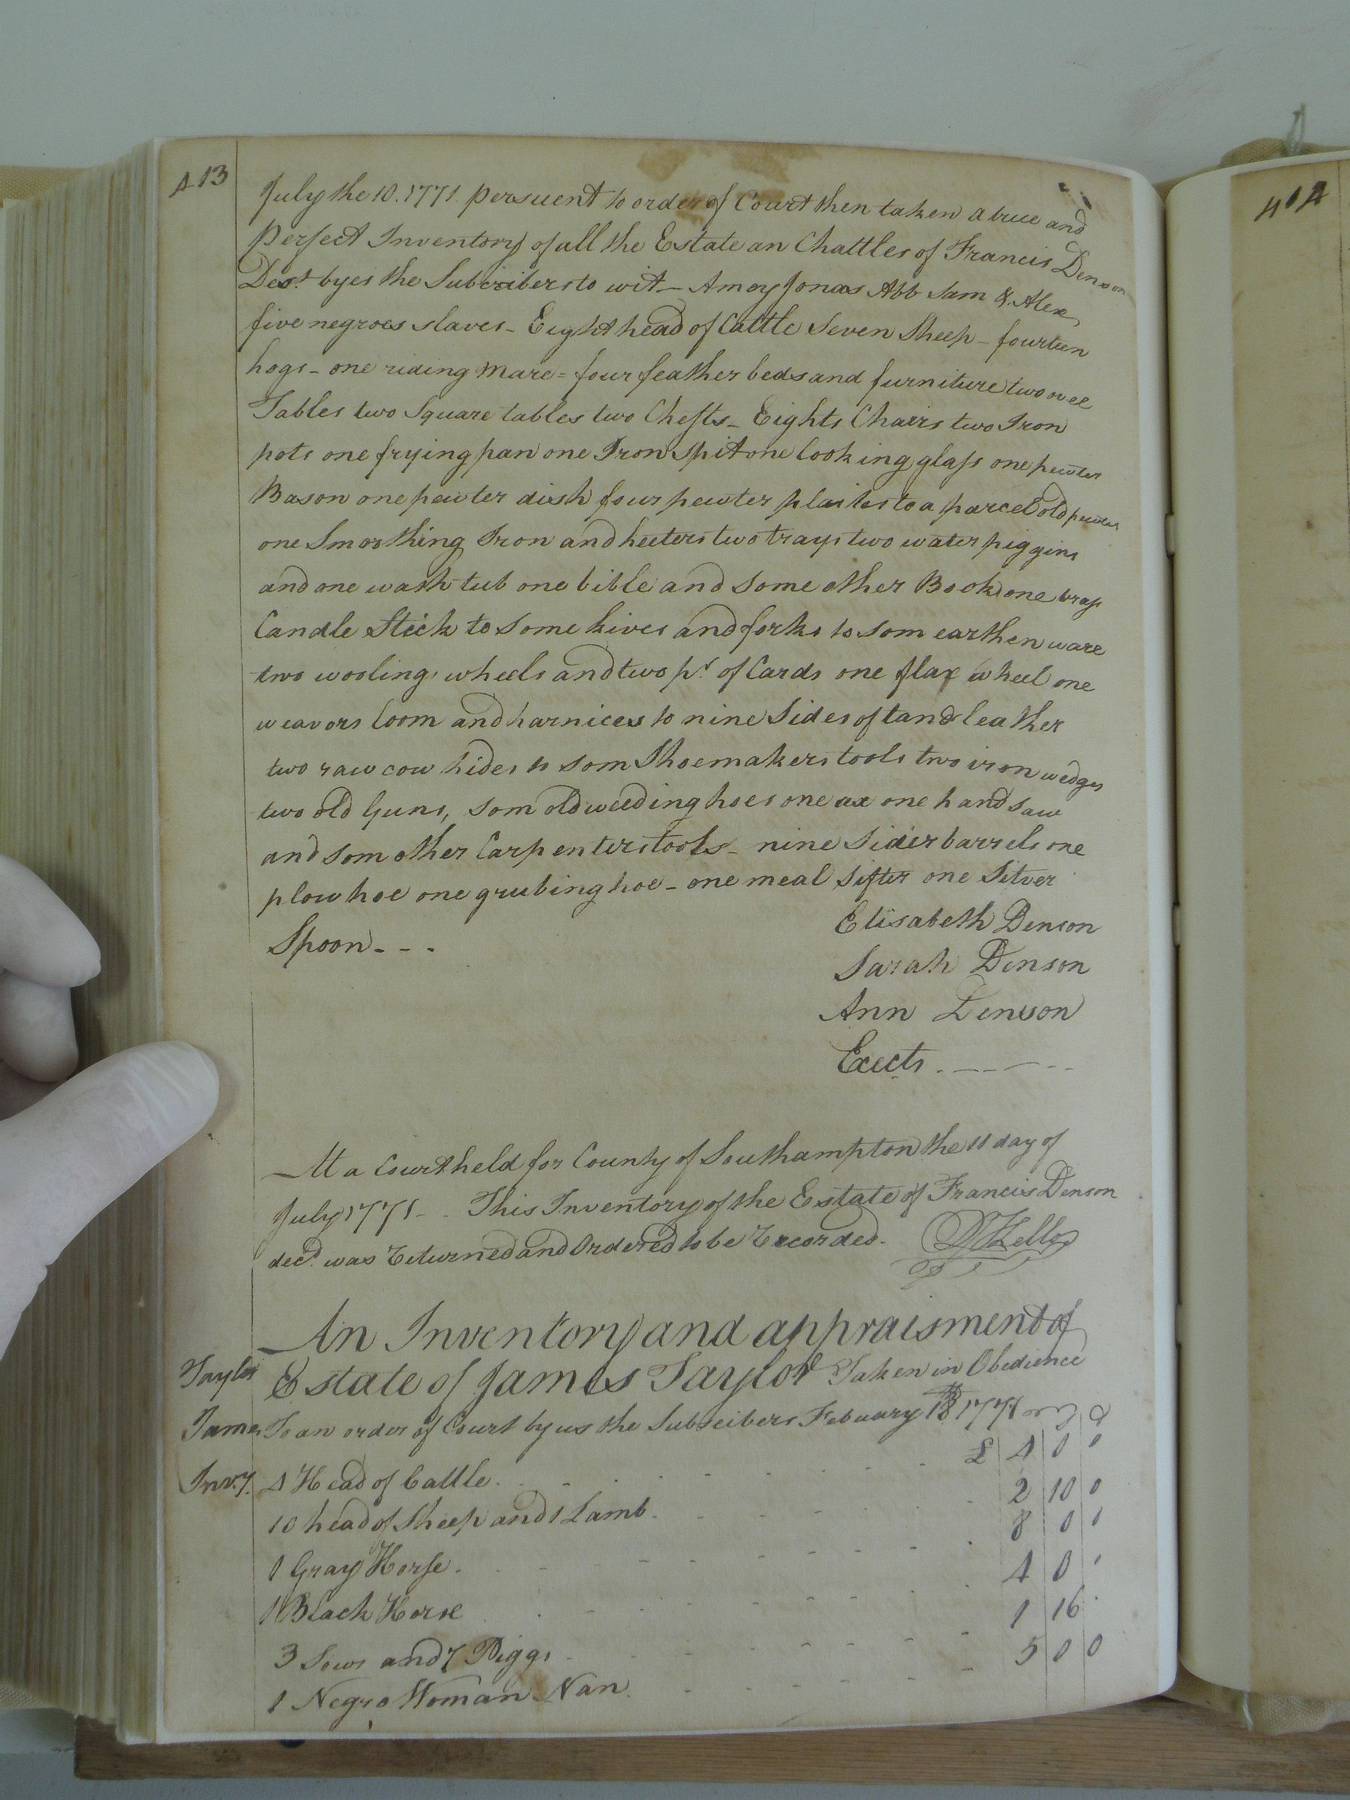 413
414
July the 10. 1771 persuent to order of Court then taken a true and
perfect Inventory of all the Estate an Chattles of Francis Denson
Desd. by es the Subcribers to wit - Amey Jonas Abb Sam & Alex
five negroes slaves - Eight head of Cattle Seven Sheep - fourteen
hogs - one riding mare = four feather beds and furniture two ovel
Tables two Square tables two Chests - Eights Chairs two Iron
pots one frying pan one Iron Spit one looking glass one pewter
Bason one pewter dish four pewter plaites to a parcel old pewter
one Smoothing Iron and heeters two trays two water piggins
and one wash tub one bible and some other Book one brass
Candle Stick to some kives and forks to som earthen ware
two wooling wheels and two pr. of Cards one flax wheel one
weavors loom and harnices to nine Sides of tand leather
two raw cow hides to som Shoemakers tools two iron wedges
two old Guns, som old weeding hoes one ax one hand saw
and som other Carpenters tools - nine Sider barrels one
plow hoe one grubing hoe - one meal Sifter one Silver
Spoon - - -
Elisabeth Denson
Sarah Denson
Ann Denson
Exects
At a Court held for County of Southampton the 11 day of
July 1771 - This Inventory of the Estate of Francis Denson
decd. was Returned and Ordered to be Recorded.
An Inventory and appraisment of
Taylor Estate of James Taylor Taken in Obedience
James To an order of Court by us the Subscibers Febuary 18 1771
Invy. 4 Head of Cattle £ 4 0 0
10 head of Sheep and 1 Lamb 2 10 0
1 Gray Horse 8 0
1 Black Horse 4 0
3 Sows and 7 Piggs 1 16
1 Negro Woman Nan 5 0 0